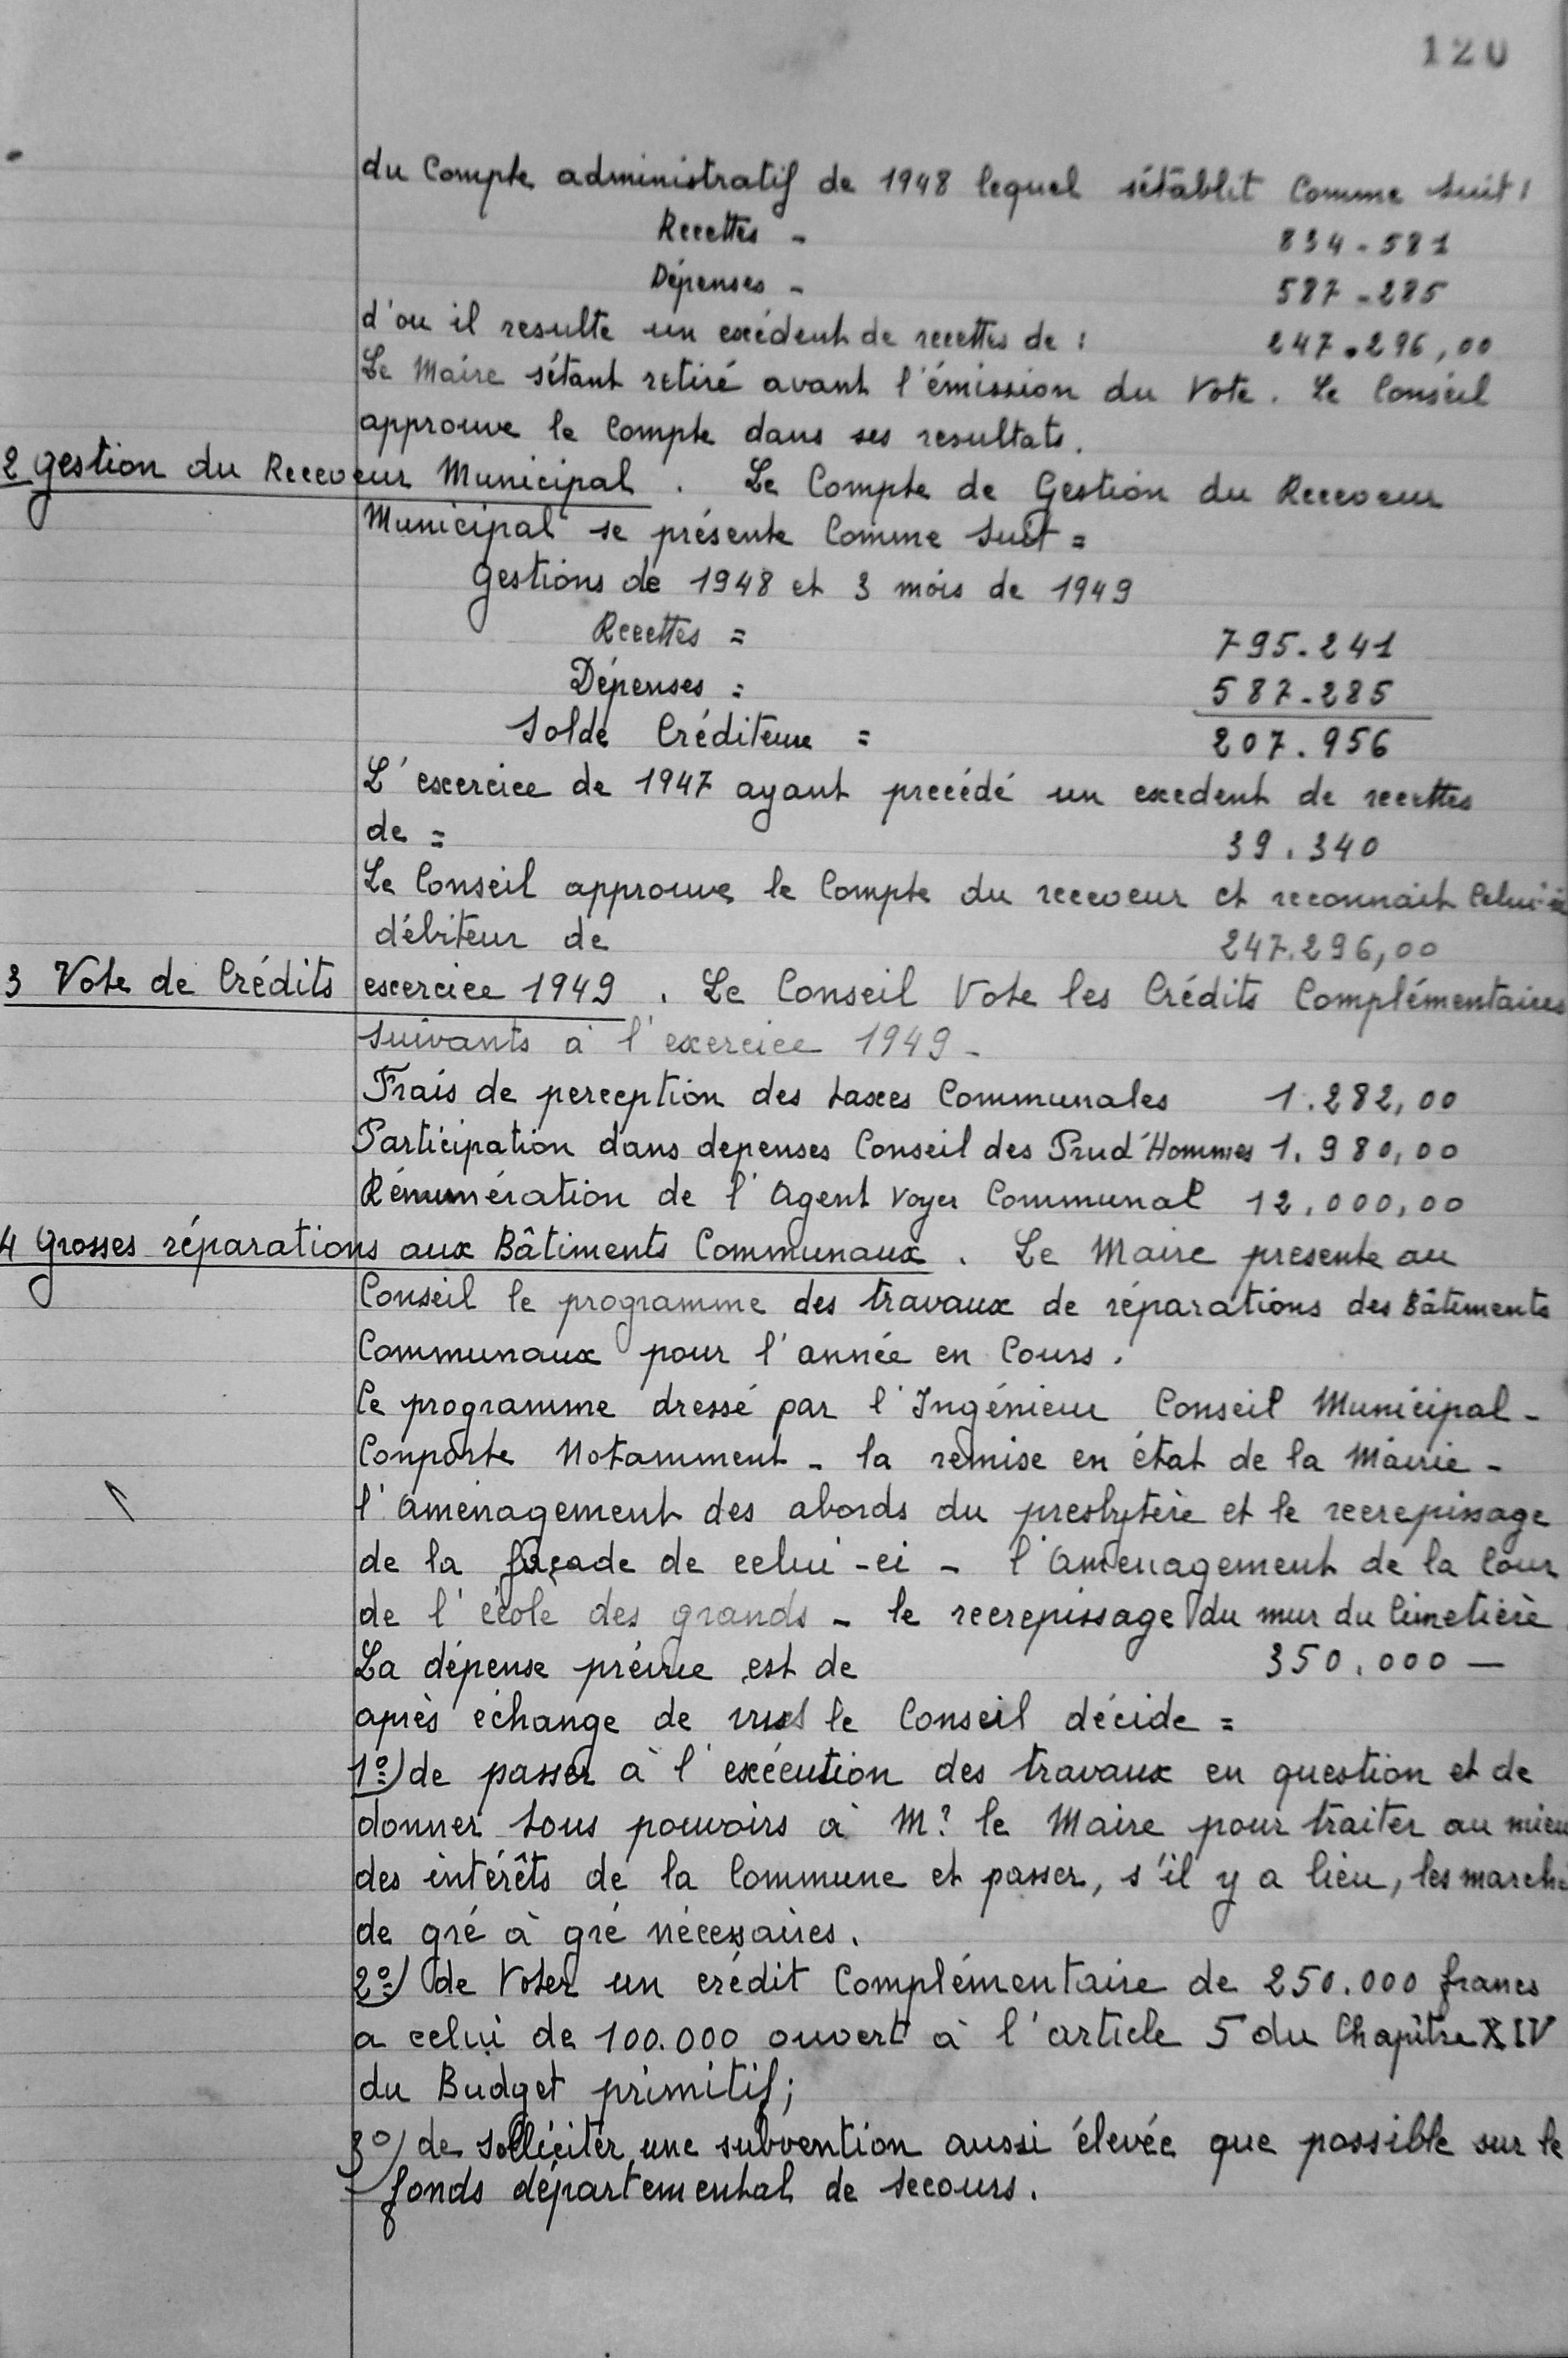 120
du Compte administratif de 1948 lequel sétablit Comme suit :
Recettes - 834-581
Dépenses - 587-285
d'ou il resulte un excédent de recettes de : 247.296,00
Le Maire sétant retiré avant l'émission du Vote. Le Conseil
approuve le Compte dans ses resultats.
2 gestion du Receveur Municipal. Le Compte de Gestion du Receveur
Municipal se présente Comme suit =
gestions de 1948 et 3 mois de 1949
Recettes = 795.241
Dépenses = 587-285
Solde Créditeur = 207.956
L'exercice de 1947 ayant precédé un excedent de recettes
de = 39.340
Le Conseil approuve le Compte du receveur et reconnait Celui-ci
débiteur de 247.296,00
3 Vote de Crédits exercice 1949. Le Conseil Vote les Crédits Complémentaires
suivants à l'exercice 1949-
Frais de perception des taxes Communales 1.282,00
Participation dans depenses Conseil des Prud'Hommes 1.980,00
Rémunération de l'Agent Voyer Communal 12.000,00
4 Grosses réparations aux Bâtiments Communaux. Le Maire presente au
Conseil le programme des travaux de réparations des Bâtiments
Communaux pour l'année en Cours.
Ce programme dressé par l'Ingénieur Conseil Municipal-
Conporte Notamment - la remise en état de la Mairie -
l'amenagement des abords du presbytère et le recrepissage
de la façade de celui-ci - l'amenagement de la Cour
de l'école des grands - le recrepissage du mur du Cimetière
La dépense prévue est de 350.000 —
après échange de vues le Conseil décide =
1º) de passer à l'exécution des travaux en question et de
donner tous pouvoirs à Mr le Maire pour traiter au mieu
des intérêts de la Commune et passer, s'il y a lieu, les march
de gré à gré nécessaires.
2º) de Voter un crédit Complémentaire de 250.000 francs
a celui de 100.000 ouvert à l'article 5 du Chapître XIV
du Budget primitif;
3º) de solliciter une subvention aussi élevée que possible sur le
fonds départemental de secours.